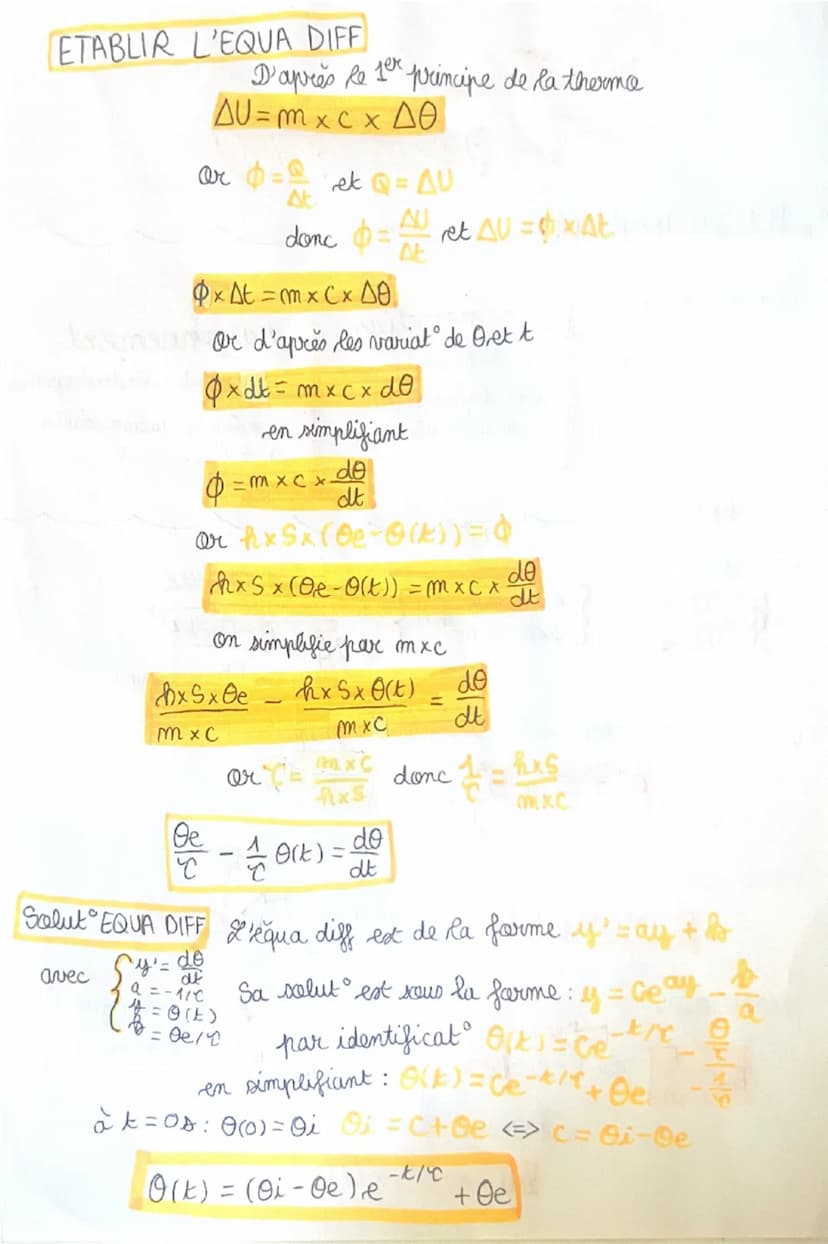 ETABLIR L'EQUA DIFF
D'après le 1er principe de la thermo
ΔU = m × c × Δθ
or ϕ = Q/Δt et Q = ΔU
donc ϕ = ΔU/Δt et ΔU = ϕ × Δt
ϕ × Δt = m × c × Δθ
Or d'après les variat° de θ et t
ϕ × dt = m × c × dθ
en simplifiant
ϕ = m × c × dθ/dt
or h × S × (θe - θ(t)) = ϕ
h × S × (θe - θ(t)) = m × c × dθ/dt
on simplifie par m×c
h×S×θe/m×c - h×S×θ(t)/m×c = dθ/dt
or τ = m×c/h×S donc 1/τ = h×S/m×c
θe/τ - 1/τ θ(t) = dθ/dt
Solut° EQUA DIFF L'équa diff est de la forme y' = ay + b
avec { y' = dθ/dt
a = -1/τ
y = θ(t)
b = θe/τ
Sa solut° est sous la forme : y = Ce^ay - b/a
par identificat° θ(t) = Ce^-t/τ - θ/τ/-1/τ
en simplifiant : θ(t) = Ce^-t/τ + θe
à t = 0s : θ(0) = θi θi = C + θe <=> C = θi - θe
θ(t) = (θi - θe) e^-t/τ + θe